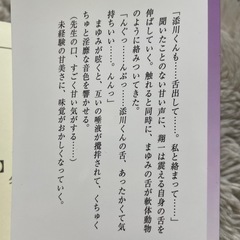 「添川くんも……舌出して……。私と絡まって……」
聞いたことのない甘い声に、翔一は震える自身の舌を
伸ばしていく。触れると同時に、まゆみの舌が軟体動物
のように絡みついてきた。
「んぐっ……んぷっ……添川くんの舌、あったかくて気
持ちいい……。んんっ」
まゆみが呟くと、互いの唾液が攪拌されて、くちゅく
ちゅと淫靡な音色を響かせる。
（先生の口、すごく甘い気がする……）
未経験の甘美さに、味覚がおかしくなっていく。